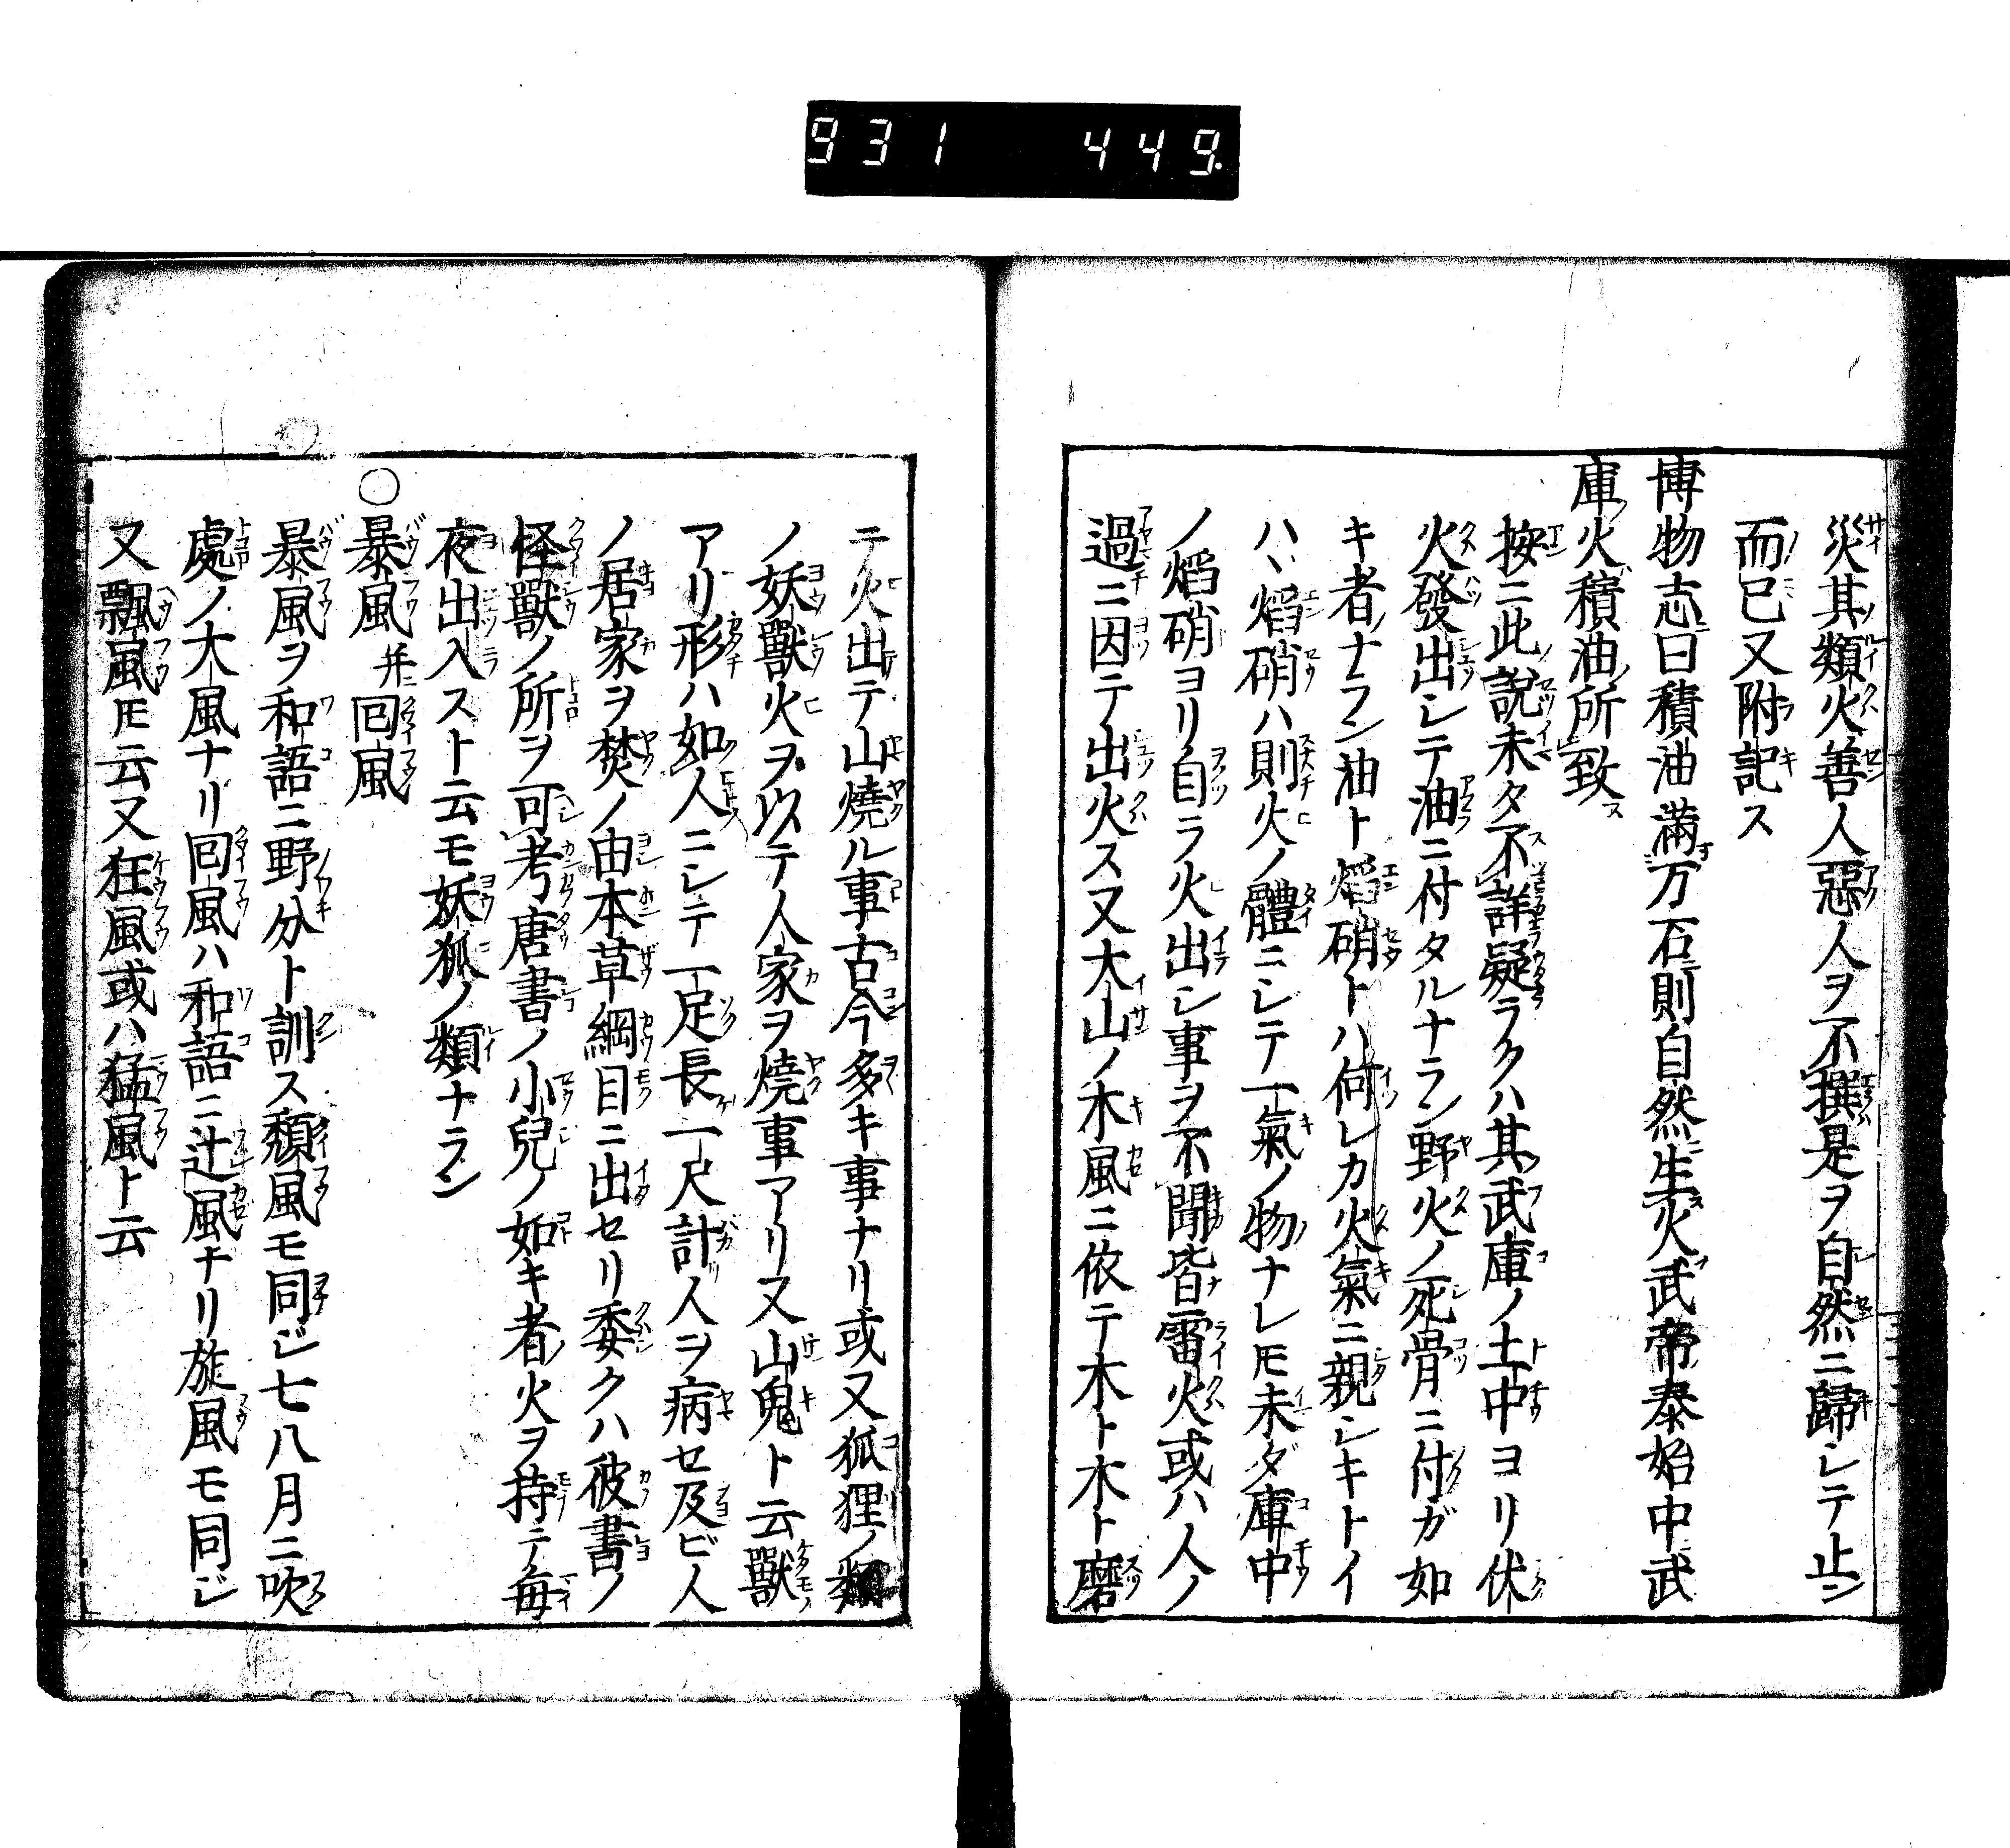 931 449.
災其類火善人惡人ヲ不撰是ヲ自然ニ歸シテ止ン
而已又附記ス
博物志曰積油滿万石則自然生火武帝泰始中武
庫火積油所致
按ニ此説未タ不詳疑ラクハ其武庫ノ土中ヨリ伏
火發出シテ油ニ付タルナラン野火ノ死骨ニ付ガ如
キ者ナラン油ト焰硝トハ何レカ火氣ニ親シキトイ
ハヽ焰硝ハ則火ノ體ニシテ一氣ノ物ナレ𪜈未ダ庫中
ノ焰硝ヨリ自ラ火出シ事ヲ不聞皆雷火或ハ人ノ
過ニ因テ出火ス又大山ノ木風ニ依テ木ト木ト磨
テ火出テ山燒ル事古今多キ事ナリ或又狐狸ノ類
ノ妖獸火ヲ以テ人家ヲ燒事アリ又山鬼ト云獸
アリ形ハ如人ニシテ一足長一尺計人ヲ病セ及ビ人
ノ居家ヲ焚ノ由本草綱目ニ出セリ委クハ彼書ノ
怪獸ノ所ヲ可考唐書ノ小兒ノ如キ者火ヲ持テ毎
夜出入スト云モ妖狐ノ類ナラン
○暴風并ニ回風
暴風ヲ和語ニ野分ト訓ス頽風モ同ジ七八月ニ吹
處ノ大風ナリ回風ハ和語ニ辻風ナリ旋風モ同ジ
又飄風𪜈云又狂風或ハ猛風ト云